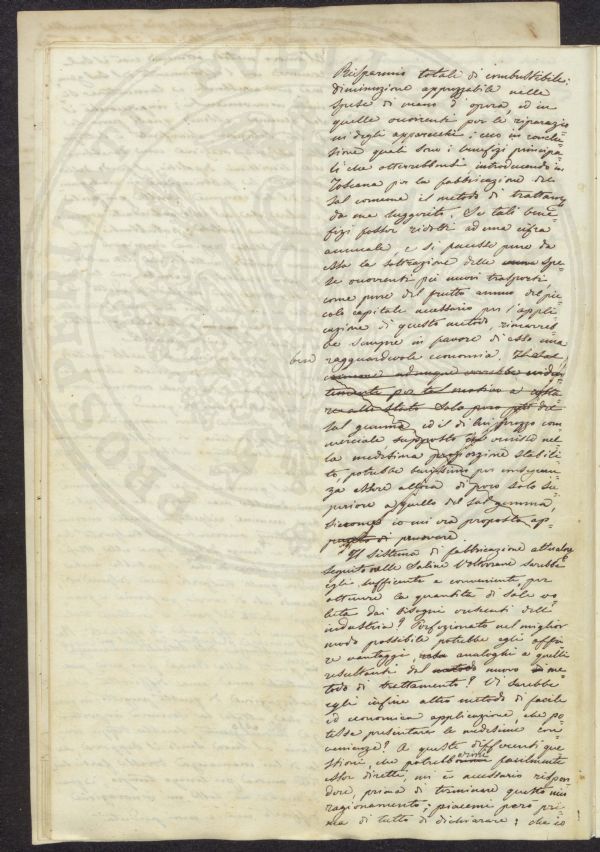 Risparmio totali di combustibile;
diminuzione apprezzabile nelle
spese di mano d'opera, ed in
quelle occorrenti per le riparazio=
ni degli apparecchi; ecco in conclu=
sione quali sono i benefizi principa=
li che otterrebbonsi introducendo in
Toscana per la fabbricazione del
sal comune il metodo di trattamto
da me suggerito. Se tali bene=
fizi fosser ridotti ad una cifra
annuale, e si facesse pure da
essa la sottrazione delle spe=
se occorrenti pei nuovi trasporti,
come pure del frutto annuo del pic=
colo capitale necessario per l'appli=
cazione di questo metodo, rimarreb=
be sempre in favore di esso una
ragguardevole economia.
adunque verrebbe eviden=
temente per tal motivo a
allo Stato solo poco del
sal gemma, ed il di lui prezzo com=
merciale supposto che venisse nel=
la medesima proporzione stabili=
to, potrebbe benissimo per conseguen=
za essere allora di poco solo su=
periore a quello del sal gemma,
siccome io mi era proposto ap=
punto di provare.
Il sistema di fabbricazione attualmte
seguito nelle Saline Volterrane sarebbe
egli sufficiente e conveniente per
ottenere la quantità di sale vo=
luta dai bisogni crescenti dell'
industria? Perfezionato nel miglior
modo possibile potrebbe egli offri=
re vantaggi, analoghi a quelli
resultanti dal metodo nuovo me=
todo di trattamento? Vi sarebbe
egli infine altro metodo di facile
ed economica applicazione, che po=
tesse presentare le medesime con=
venienze? A queste differenti que=
stioni, che potrebbero facilmente
esser dirette, mi è necessario rispon=
dere, prima di terminare questo mio
ragionamento; piacemi però pri=
ma di tutto di dichiarare, che io